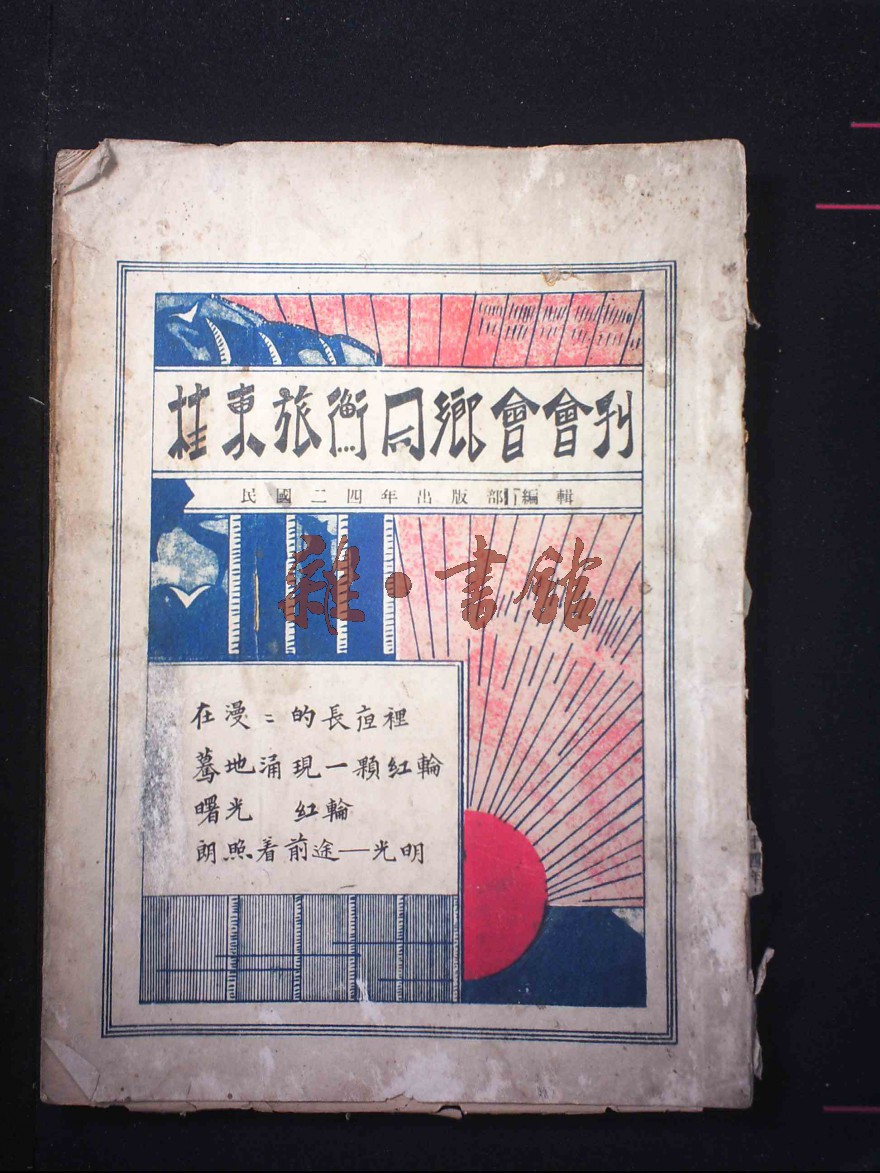 桂東旅衡同鄉會會刊
民國二四年出版部編輯
雜·書館
在漫〻的長夜裡
驀地涌現一顆紅輪
曙光 紅輪
朗照着前途—光明